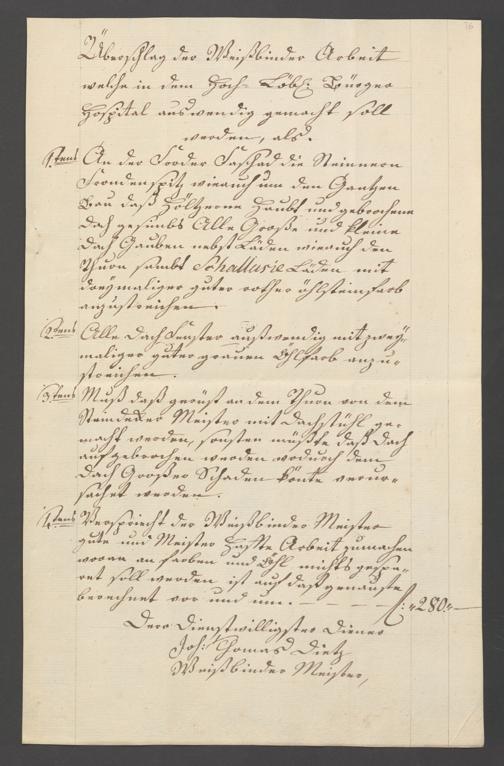 76
Überschlag der Weißbinder Arbeit
welche in dem Hoch- Löbl: Bürger
Hospital auswendig gemacht soll
werden, als.
1.tens An der Forder Faschad die Steinnern
Frondenspitz wie auch um den Gantzen
Bau daß Höltzerne Haubt und gebrochene
Dach gesimbs Alle Große und kleine
Dach Gauben nebst Läden wie auch den
Thurn sambt Schallusie Läden mit
dreymaliger guter rother öhlsteinfarb
anzustreichen.
2tens Alle Dachfenster außwendig mit zwey-
maliger guter grauen Öhlfarb anzu-
streichen.
3tens Muß daß gerüst an dem Thurn von dem
Steindecker Meister mit Dachstühl ge-
macht werden, sonsten müßte daß Dach
aufgebrochen werden wodurch dem
Dach Großer Schaden könte verur-
sachet werden.
4tens Verspricht der Weißbinder Meister
gute und Meister Haffte Arbeit zu machen
woran an farben und Öhl nichts gespa-
ret soll werden ist auf daß genauste
berechnet vor und um. - - - f: 280.
Dero Dienstwilligster Diener
Joh: Thomas Dietz
Weißbinder Meister,